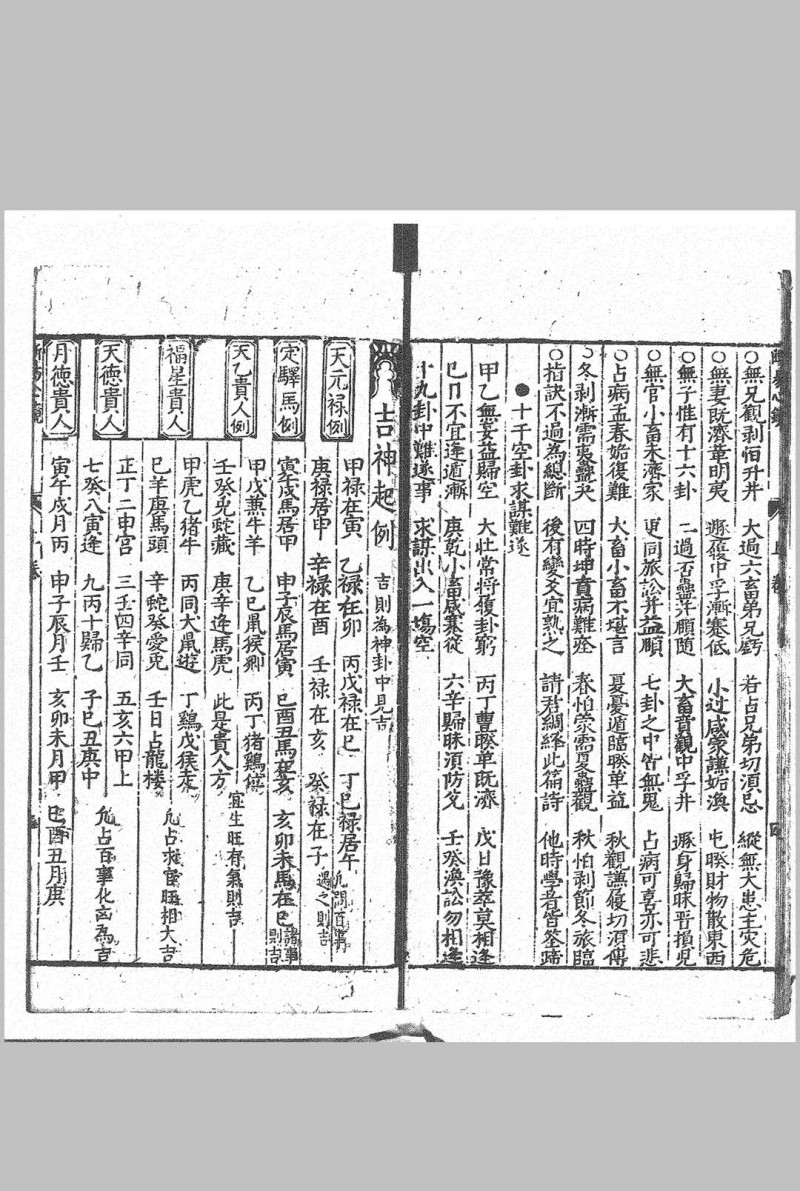 ○無兄觀剥恒升井　大過六畜弟兄虧　若占兄弟切須忌　縱無大患主灾危
○無妻既濟革明夷　遯履中孚漸蹇低　小过咸蒙謙姤渙　屯睽財物散東西
○無子惟有十六卦　二過否蠱并頤隨　大畜賁觀中孚井　豚身歸昧晋損見
○無官小畜未濟家　更同旅訟并益頤　七卦之中皆無鬼　占病可喜亦可悲
○占病孟春姤復難　大畜小畜不堪言　夏憂遁臨睽单益　秋觀謙履切須傳
○冬剥漸需夷蠱夬　四時坤賁病難痊　春怕蒙需夏蠱觀　秋怕剥節冬旅臨
○指訣不過為總斷　後有變爻宜熟之　請君綢繹此篇詩　他時學者皆筌蹄
●十干空卦求謀難遂
甲乙無妄益歸空　大壮常将履卦窮　丙丁豐睽单既濟　戊日豫萃莫相逢
巳日不宜逢遁漸　庚乾小畜咸蹇從　六辛歸昧須防兌　壬癸渙訟勿相逢
十九卦中難遂事　求謀出入一塲空
吉神起例　吉則為神卦中見吉
天元禄例　甲禄在寅　乙禄在卯　丙戊禄在巳　丁巳禄居午
庚禄居申　辛禄在酉　壬禄在亥　癸禄在子　凢問百事遇之則吉
定驛馬例　寅午戌馬居申　申子辰馬居寅　巳酉丑馬在亥　亥卯未馬在巳　諸事則吉
天乙貴人例　甲戊蒹牛羊　乙巳鼠猴鄉　丙丁猪鷄位
壬癸兎蛇藏　庚辛逢馬虎　此是貴人方　宜生旺有氣則吉
福星貴人　甲虎乙猪牛　丙同犬鼠遊　丁鷄戊猴走
巳羊庚馬頭　辛蛇癸愛兎　壬日占龍楼　凢占求官旺相大吉
天徳貴人　正丁二申宫　三壬四辛同　五亥六甲上
七癸八寅逢　九丙十歸乙　子巳丑庚中　凢占百事化凶為吉
月徳貴人　寅午戌月丙　申子辰月壬　亥卯未月甲　巳酉丑月庚